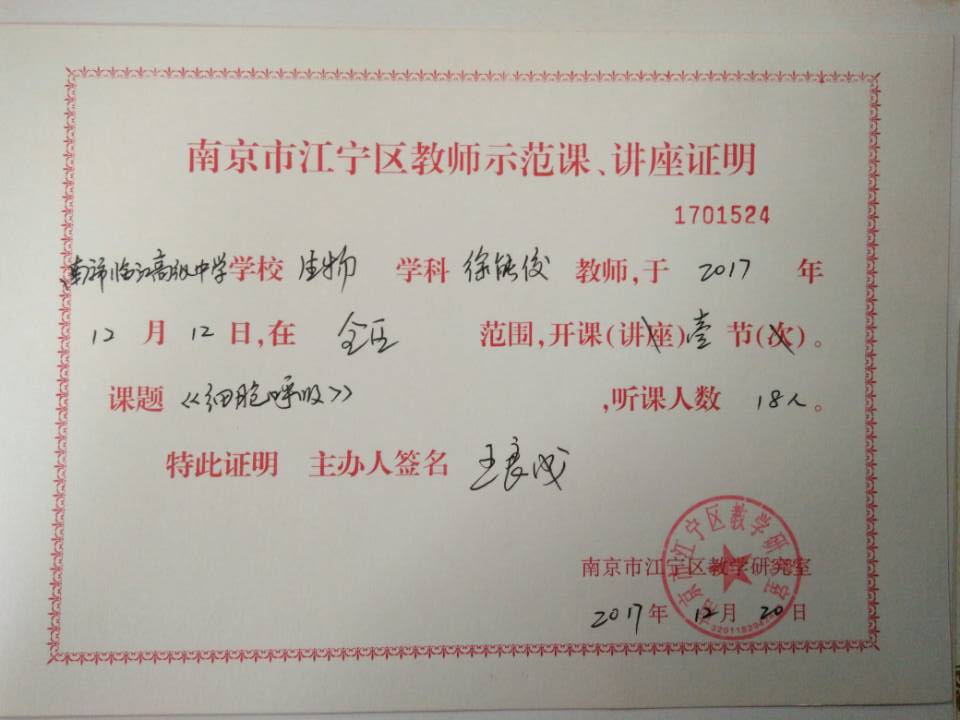 南京市江宁区教师示范课、讲座证明
1701524
南师临江高级中学学校 生物 学科 徐能俊 教师,于 2017 年
12 月 12 日,在 全区 范围,开课(讲座)壹 节(次)。
课题 《细胞呼吸》 ,听课人数 18人。
特此证明 主办人签名 王良成
南京市江宁区教学研究室
南京市江宁区教学研究室
2017年 12月 20日